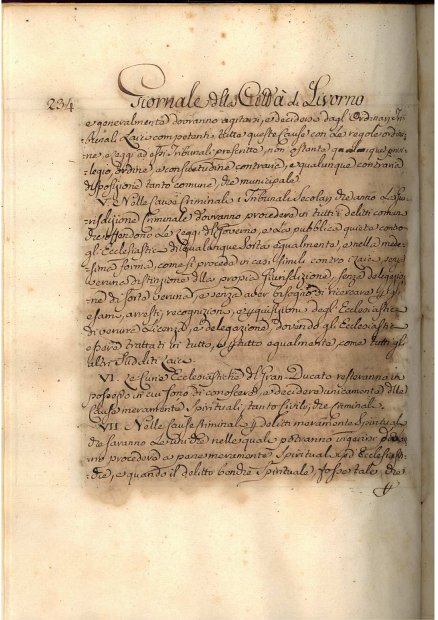 234 Giornale della Città di Livorno
e generalmente dovranno agitarsi, e decidersi dagl' Ordinarj Tri-
bunali Laici competenti tutte queste Cause con le regole, ordi-
ne, e Leggi ad essi Tribunali prescritte, non ostante qualunque privi-
legio, ordine, e consuetudine contraria, e qualunque contraria
disposizione tanto comune, che municipale.
V. Nelle Cause Criminali i Tribunali Secolari che anno la Giu-
risdizione Criminale dovranno procedere in tutti i delitti comuni
che offendono le Leggi del Governo, e la pubblica quiete contro
gli Ecclesiastici di qualunque sorta egualmente, e nella mede-
sima forma, come si procede in casi simili contro i Laici, senza
veruna distinzione della propria Giurisdizione, senza delegazio-
ne di sorte veruna, e senza aver bisogno di ricercare p. gl' e-
sami, arresti, recognizioni, e perquisizioni degl' Ecclesiastici
di veruna Licenza, e delegazione, dovendo gli Ecclesiastici
essere trattati in tutto, e p. tutto egualmente, come tutti gli
altri Sudditi Laici.
VI. Le Curie Ecclesiastiche del Gran-Ducato resteranno in
possesso in cui sono di conoscere, e decidere unicamente delle
Cause meramente Spirituali, tanto Civili, che Criminali.
VII. Nelle cause Criminali p. delitti meramente Spirituali
che saranno le sole che nelle quali potranno ingerirsi potran-
no procedere a pene meramente Spirituali, ed Ecclesiasti-
che, e quando il delitto benchè Spirituale, fosse tale, che